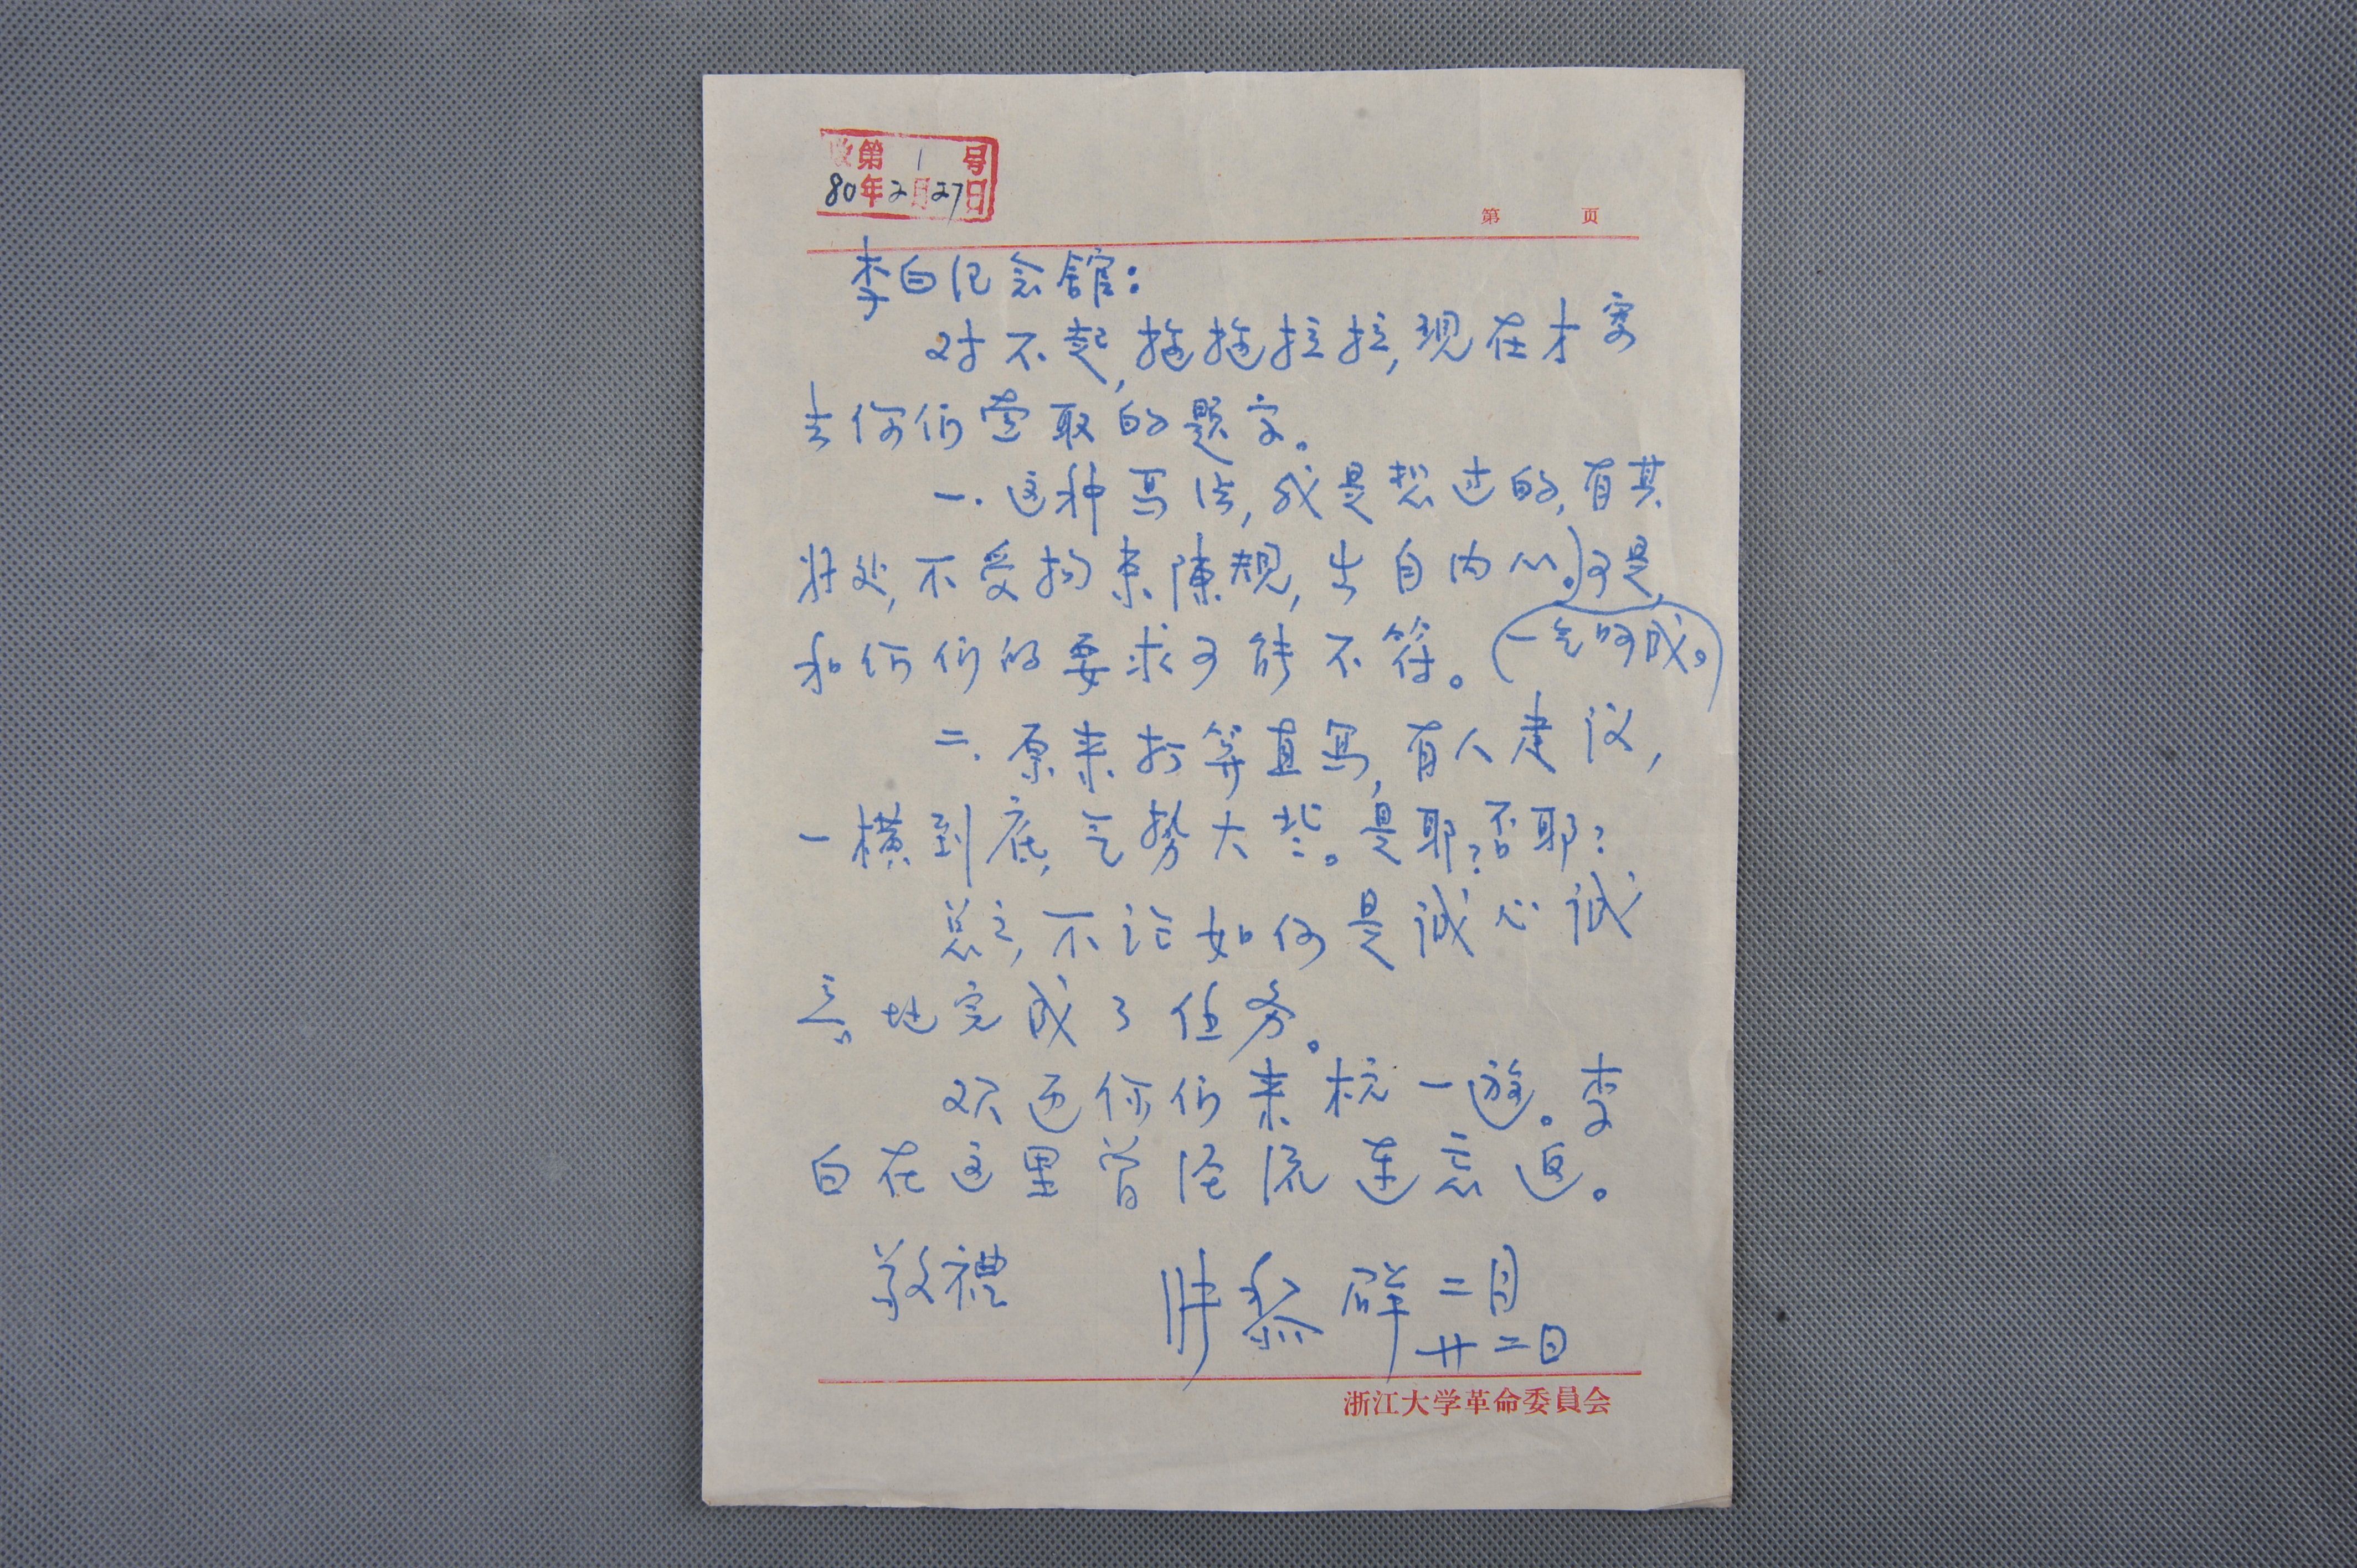 收第1号
80年2月27日
第 页
李白纪念館：
对不起，拖拖拉拉，现在才寄
去你们索取的题字。
一.这种写法，我是想过的，有其
好处，不受拘束陳规，出自内心。可是，
和你们的要求可能不符。（一气呵成。）
二.原来打算直写，有人建议，
一横到底，气势大些。是耶？否耶？
总之，不论如何是诚心诚
意地完成了任务。
欢迎你们来杭一遊。李
白在这里曾经流连忘返。
敬禮
黎群 二月
廿二日
浙江大学革命委員会